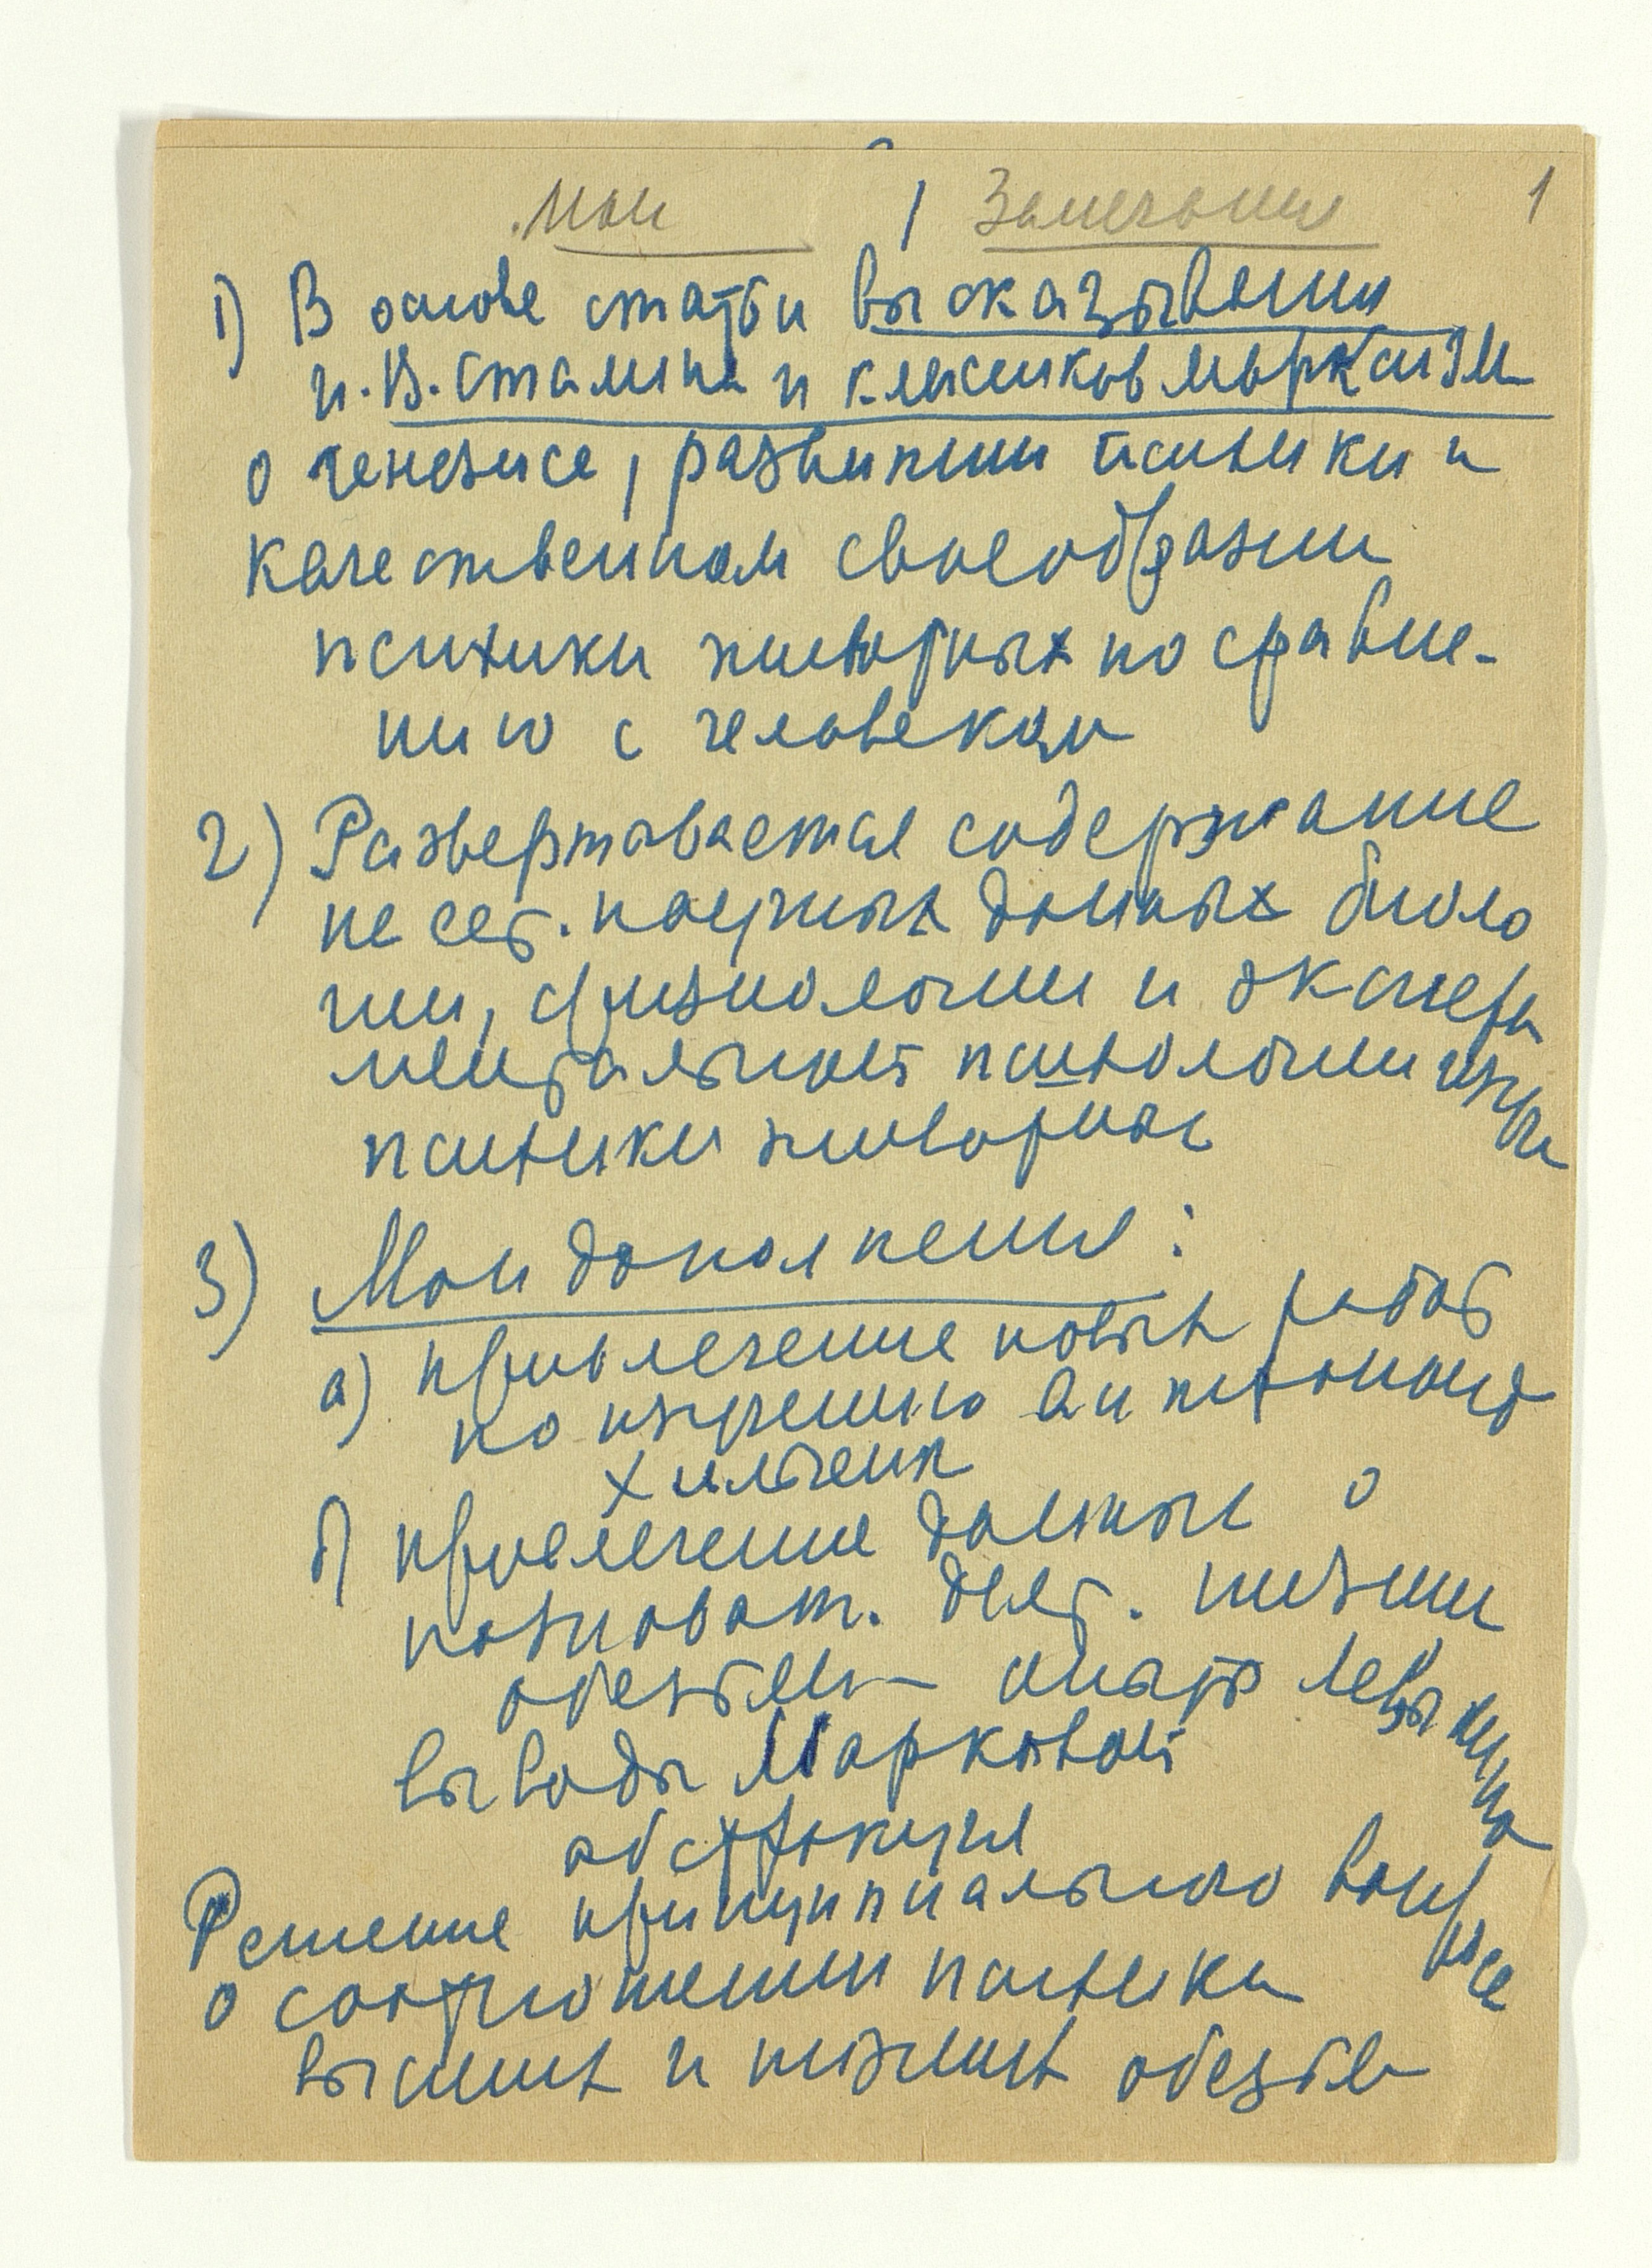 Мои / Замечания 1
1) В основе статьи высказывания
И. В. Сталина и классиков марксизм
о генезисе, развитии психики и
качественном своеобразии
психики животных по сравне-
нию с человеком
2) Развертывается содержание
на сег. научных данных биоло
гии, физиологии и экспери
ментальной психологии изуч
психики животных
3) Мои дополнения:
а) привлечение новых работ
по изучению антропоид
Хильченк
б) привлечение данных о
познават. деят. низши
обезьян опыты Левыкина
выводы Марковой
абстракция
Решение принципиального вопроса
о соотношении психики
высших и низших обезьян